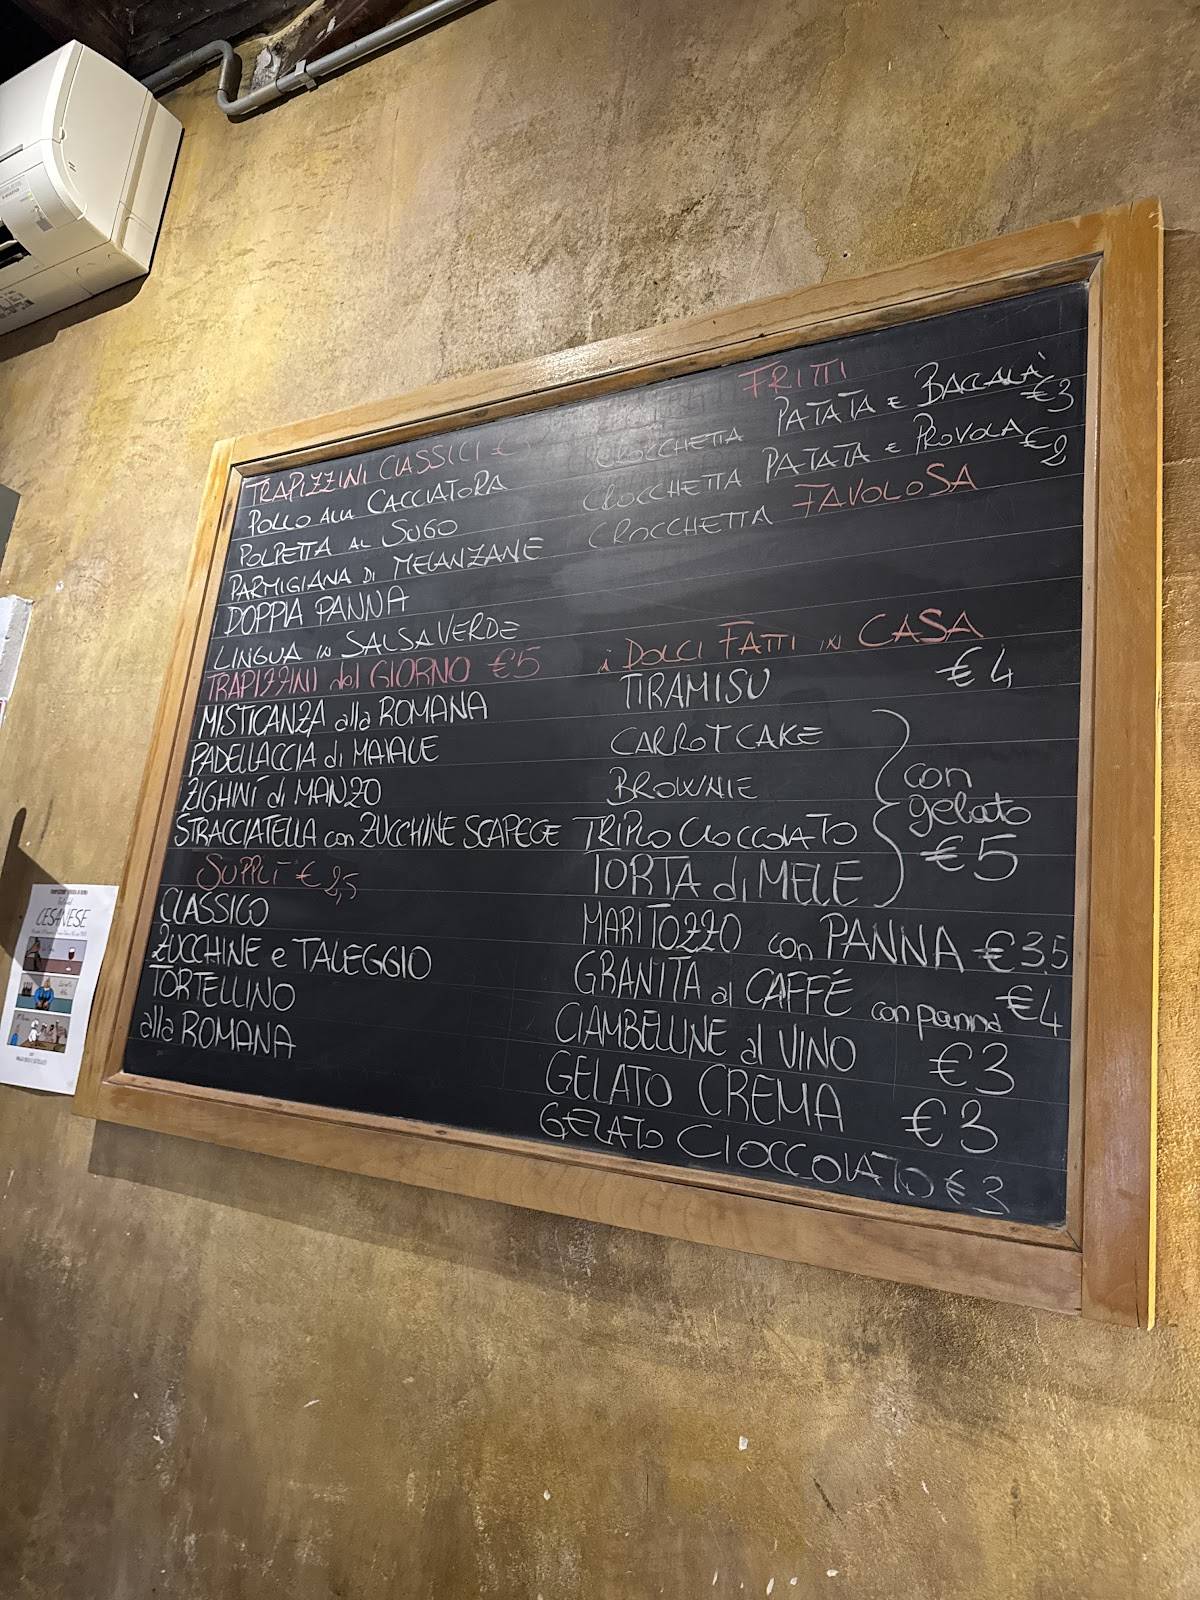 TRAPIZZINI CLASSICI €
POLLO ALLA CACCIATORA
POLPETTA AL SUGO
PARMIGIANA DI MELANZANE
DOPPIA PANNA
LINGUA IN SALSA VERDE
TRAPIZZINI del GIORNO €5
MISTICANZA alla ROMANA
PADELLACCIA di MAIALE
ZIGHINÍ di MANZO
STRACCIATELLA con ZUCCHINE SCAPECE
SUPPLÌ €2,5
CLASSICO
ZUCCHINE e TALEGGIO
TORTELLINO
alla ROMANA
FRITTI
CROCCHETTA PATATA E BACCALÀ €3
CROCCHETTA PATATA E PROVOLA €2
CROCCHETTA FAVOLOSA
i DOLCI FATTI IN CASA
TIRAMISU €4
CARROT CAKE
BROWNIE
TRIPLO CIOCCOLATO
TORTA di MELE
con
gelato
€5
MARITOZZO con PANNA €3,5
GRANITA al CAFFÉ con panna €4
CIAMBELLINE al VINO €3
GELATO CREMA €3
GELATO CIOCCOLATO €3
CESANESE